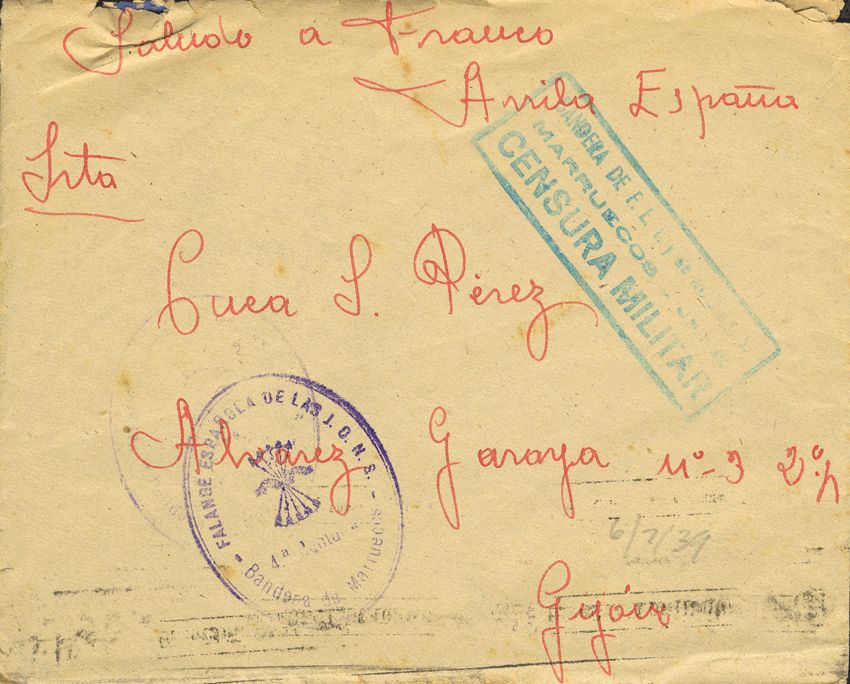 Saludo a Franco
Arriba España
Srta
Cuca S. Pérez
Alvarez Garaya nº-3 2º
Gijón
BANDERA DE F. E. T.
MARRUECOS
CENSURA MILITAR
FALANGE ESPAÑOLA DE LAS J. O. N. S.
4.ª
Bandera de Marruecos
6/7/39